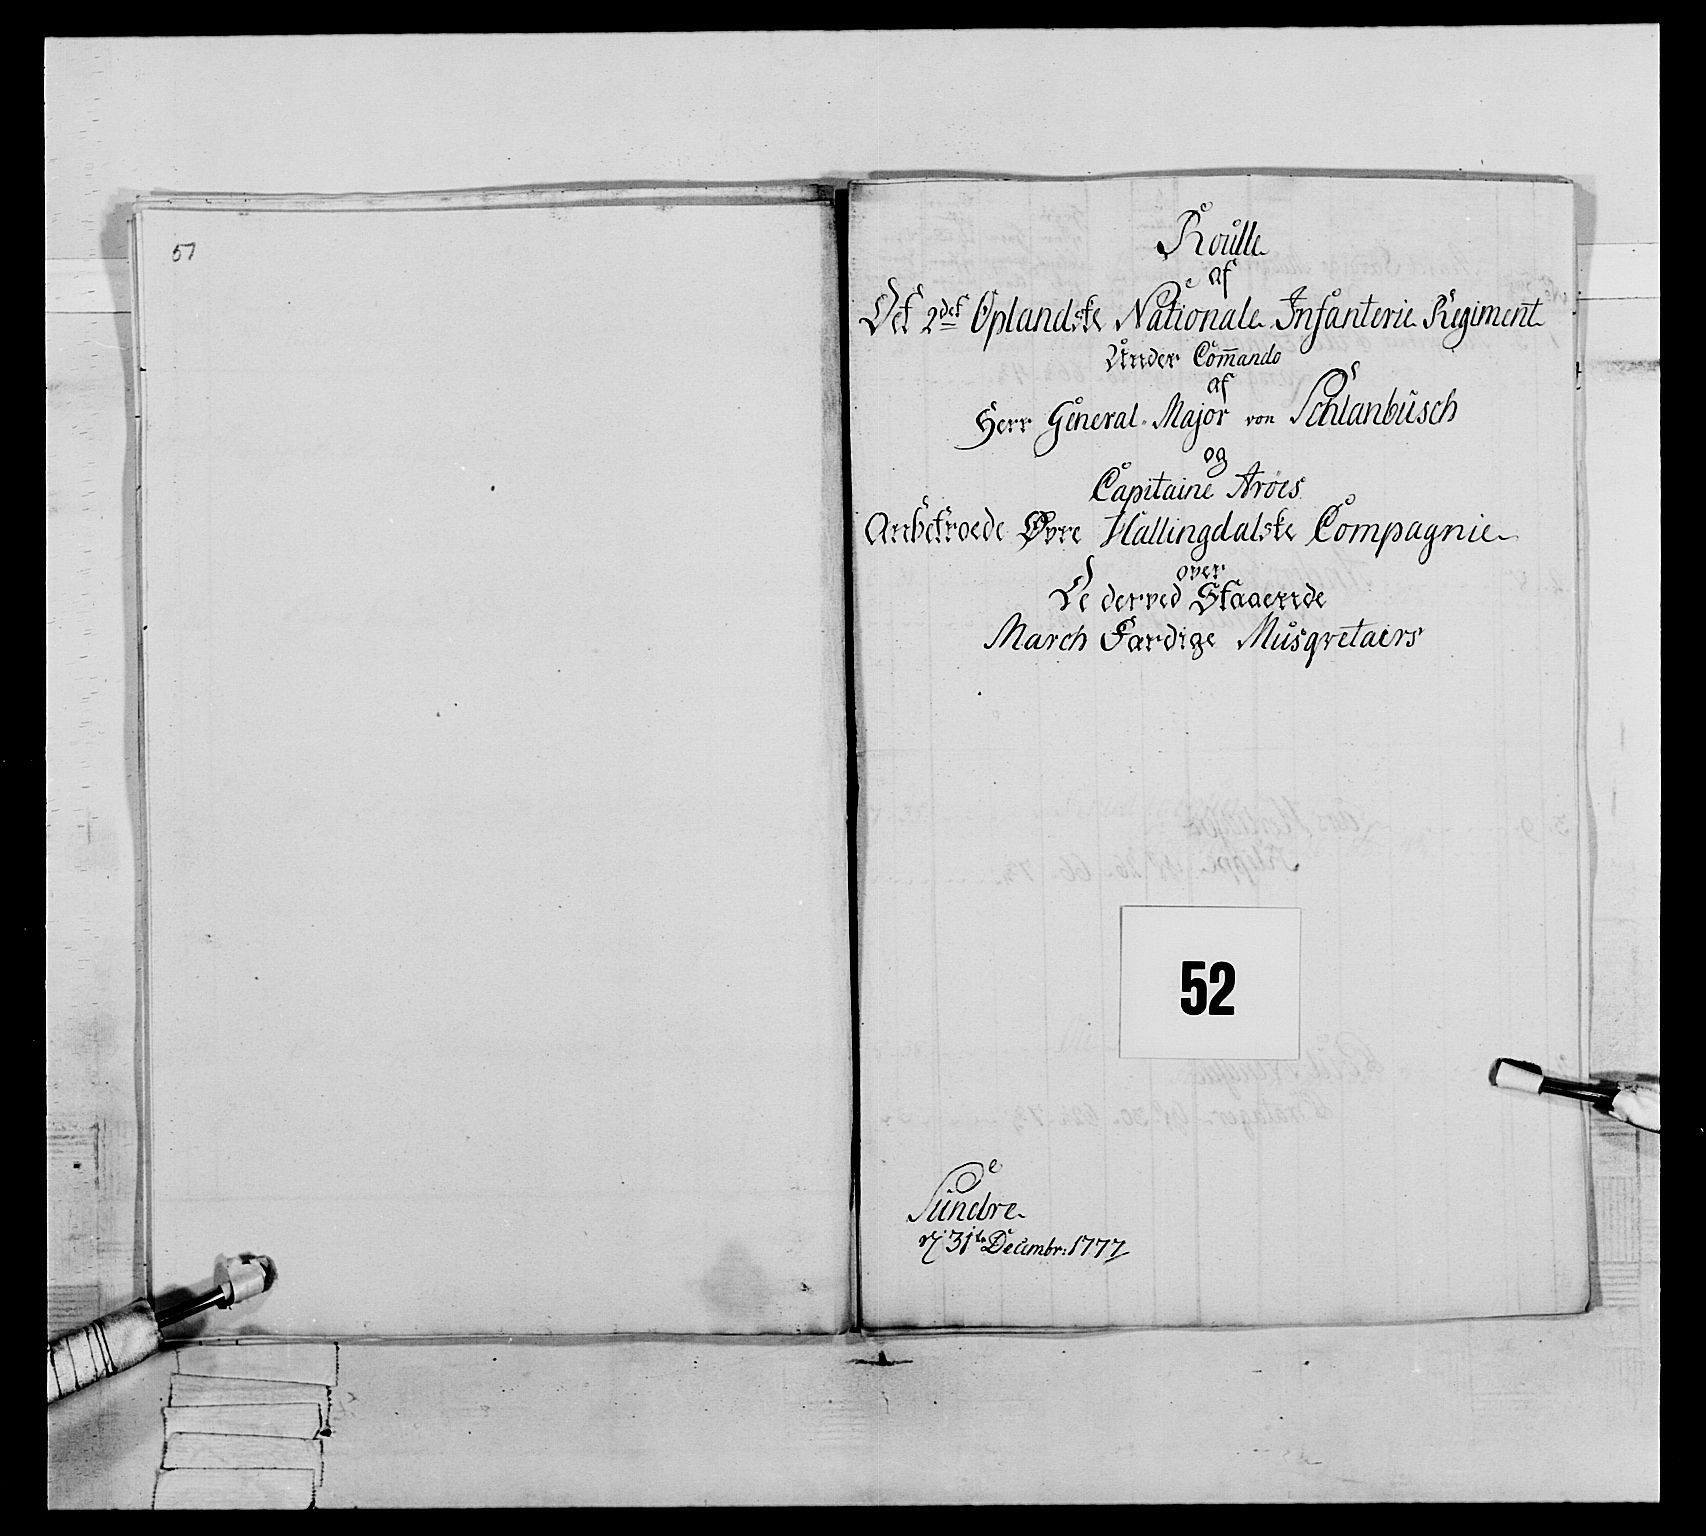 51
Roulle
af
Det 2det Oplandske Nationale Infanterie Regiment
Under Com̅ando
af
Herr General-Major von Schlanbusch
og
Capitaine Arøes
Anbetroede Øvre Hallingdalske Compagnie
over
De derved Staaende
March Færdige Musqvetaers
52
Sundre
31te Decembr: 1777